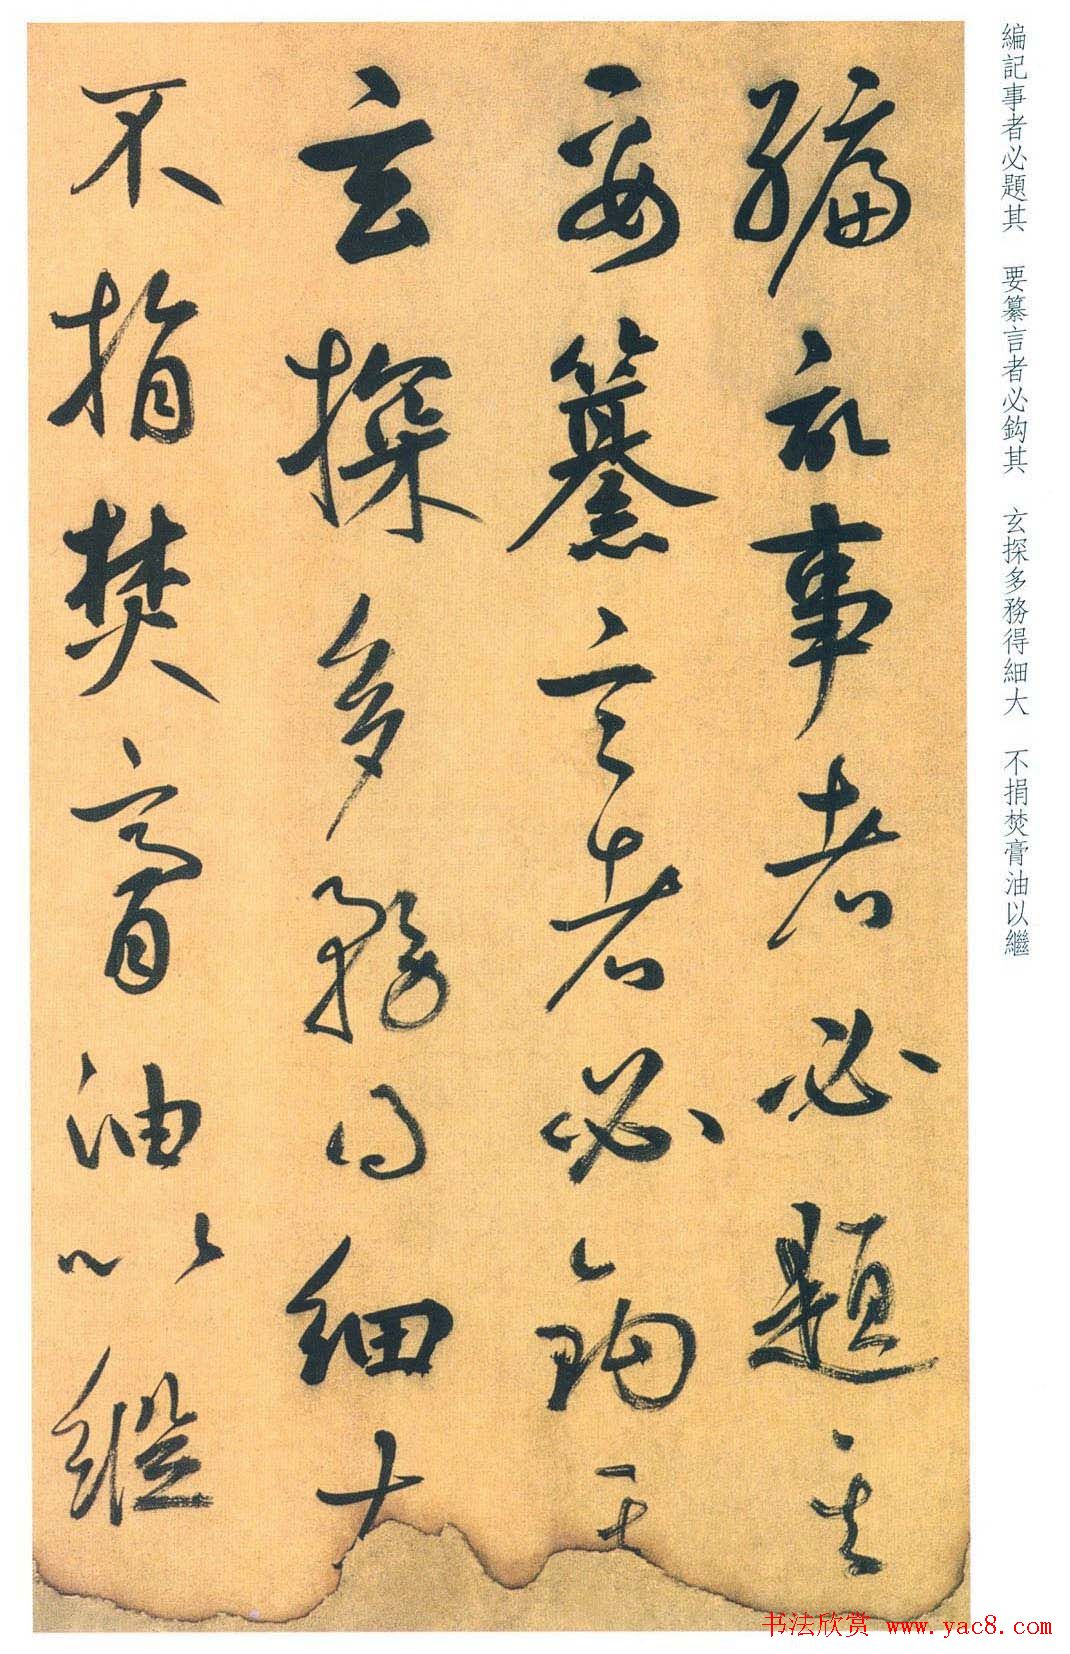 編記事者必題其
要纂言者必鈎其
玄探多務得細大
不捐焚膏油以繼
編記事者必題其 要纂言者必鈎其 玄探多務得細大 不捐焚膏油以繼
书法欣赏 www.yac8.com